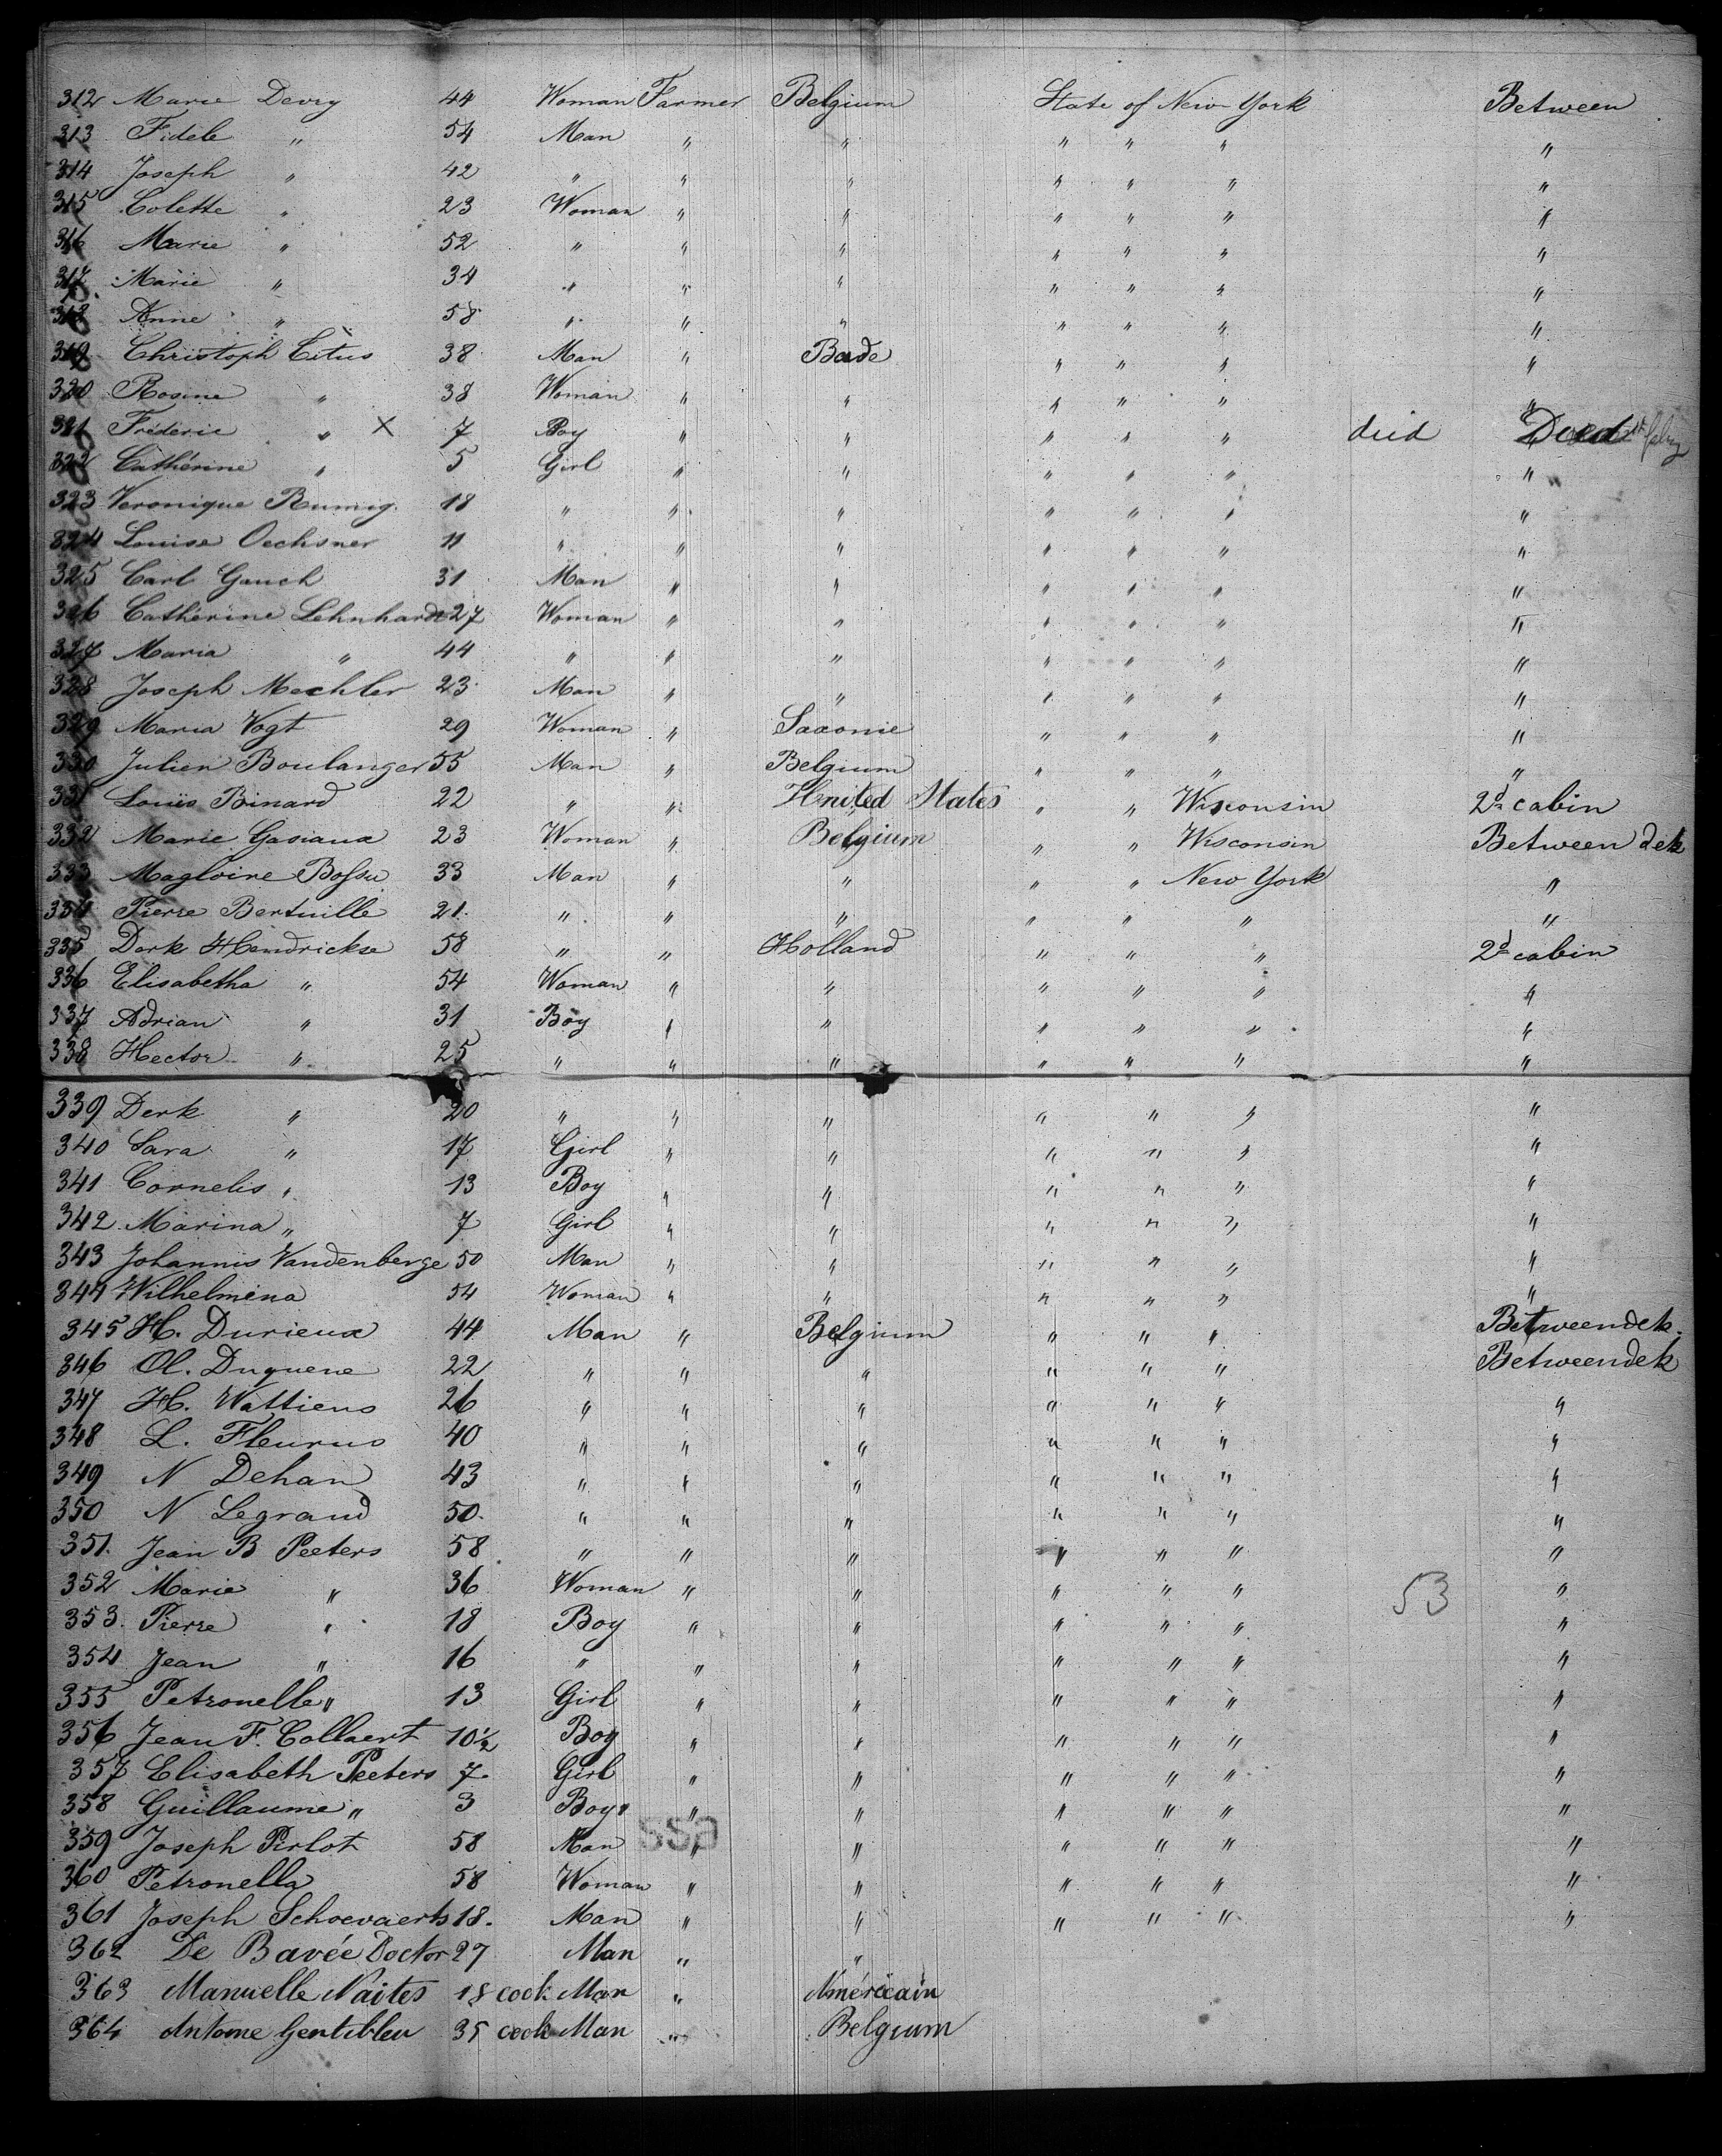 312 Marie Devry 44 Woman Farmer Belgium State of New York Between
313 Fidele " 54 Man " " " " " "
314 Joseph " 42 " " " " " " "
315 Colette " 23 Woman " " " " " "
316 Marie " 52 " " " " " " "
317 Marie " 34 " " " " " " "
318 Anne " 58 " " " " " " "
319 Christoph Citus 38 Man " Bade " " " "
320 Rosine " 38 Woman " " " " " "
321 Fréderic " X 7 Boy " " " " " died Died
322 Cathérine " 5 Girl " " " " " "
323 Veronique Rumig 18 " " " " " " "
324 Louise Oechsner 11 " " " " " " "
325 Carl Gauch 31 Man " " " " " "
326 Cathérine Lehnhardt 27 Woman " " " " " "
327 Maria " 44 " " " " " " "
328 Joseph Mechler 23 Man " " " " " "
329 Maria Vogt 29 Woman " Saxonie " " " "
330 Julien Boulanger 55 Man " Belgium " " " "
331 Louis Binard 22 " " United States " " Wisconsin 2d cabin
332 Marie Gasiaux 23 Woman " Belgium " " Wisconsin Between dek
333 Magloire Bossu 33 Man " " " " New York "
334 Pierre Bertuille 21 " " " " " " "
335 Derk Hendrickse 58 " " Holland " " " 2d cabin
336 Elisabetha " 54 Woman " " " " " "
337 Adrian " 31 Boy " " " " " "
338 Hector " 25 " " " " " " "
339 Derk " 20 " " " " " " "
340 Sara " 17 Girl " " " " " "
341 Cornelis " 13 Boy " " " " " "
342 Marina " 7 Girl " " " " " "
343 Johannis Vandenberge 50 Man " " " " " "
344 Wilhelmina 54 Woman " " " " " "
345 H. Durieux 44 Man " Belgium " " " Betweendek
346 Ol. Duquene 22 " " " " " " Betweendek
347 H. Wattiens 26 " " " " " " "
348 L. Fleurus 40 " " " " " " "
349 N Dehan 43 " " " " " " "
350 N Legrand 50 " " " " " " "
351. Jean B Peeters 58 " " " " " " "
352 Marie " 36 Woman " " " " " 53 "
353. Pierre " 18 Boy " " " " " "
354 Jean " 16 " " " " " " "
355 Petronelle " 13 Girl " " " " " "
356 Jean F. Collaert 10 1/2 Boy " " " " " "
357 Elisabeth Peeters 7 Girl " " " " " "
358 Guillaume " 3 Boy " " " " " "
359 Joseph Pirlot 58 Man " " " " " "
360 Petronella 58 Woman " " " " " "
361 Joseph Schoevaerts 18. Man " " " " " "
362 De Bavée Doctor 27 Man " "
363 Manuelle Naites 18 cook Man " Américain
364 Antome Gentibleu 35 cook Man " Belgium